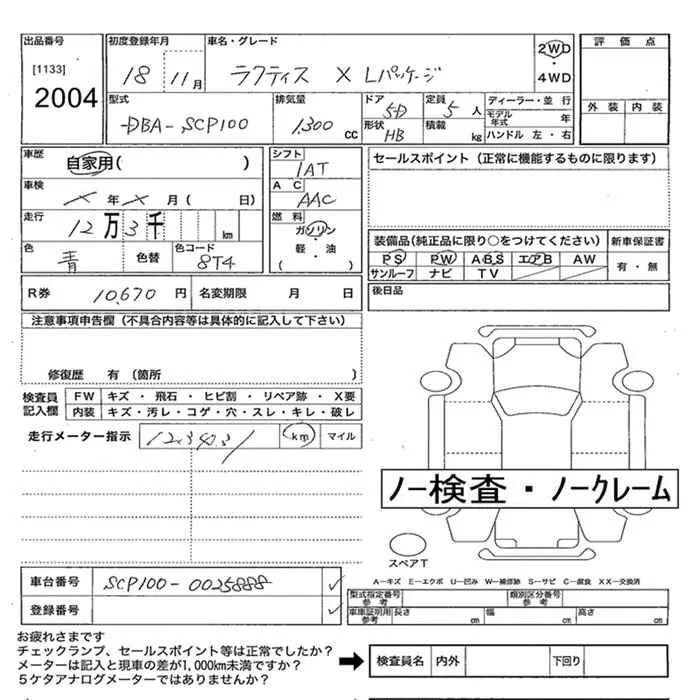 出品番号 初度登録年月 車名・グレード 評価点
[1133] 18 11月 ラクティス X Lパッケージ 2WD・4WD
2004
外装 内装
型式 排気量 ドア 5D 定員 5人 ディーラー・並行
DBA-SCP100 1,300cc 形状 HB 積載 kg モデル年式 年
ハンドル 左・右
車歴 自家用( ) シフト IAT セールスポイント(正常に機能するものに限ります)
車検 年 月( 日) AC AAC
走行 12万3千 km 燃料 ガソリン・軽・油( )
色 青 色替 色コード 8T4
装備品(純正品に限り○をつけてください) 新車保証書
PS PW ABS エアB AW 有・無
サンルーフ ナビ TV
R券 10,670円 名変期限 月 日 後日品
注意事項申告欄(不具合内容等は具体的に記入して下さい)
修復歴 有(箇所 )
検査員記入欄 FW キズ・飛石・ヒビ割・リペア跡・X要
内装 キズ・汚レ・コゲ・穴・スレ・キレ・破レ
走行メーター指示 km マイル
ノー検査・ノークレーム
スペアT
A-キズ E-エクボ U-凹み W-補修跡 S-サビ C-腐食 XX-交換済
車台番号 SCP100-0025888
登録番号
型式指定番号 参考 類別区分番号 参考
車庫証明用参考 長さ cm 幅 cm 高さ cm
お疲れさまです
チェックランプ、セールスポイント等は正常でしたか?
メーターは記入と現車の差が1,000km未満ですか?
5ケタアナログメーターではありませんか?
検査員名 内外 下回り